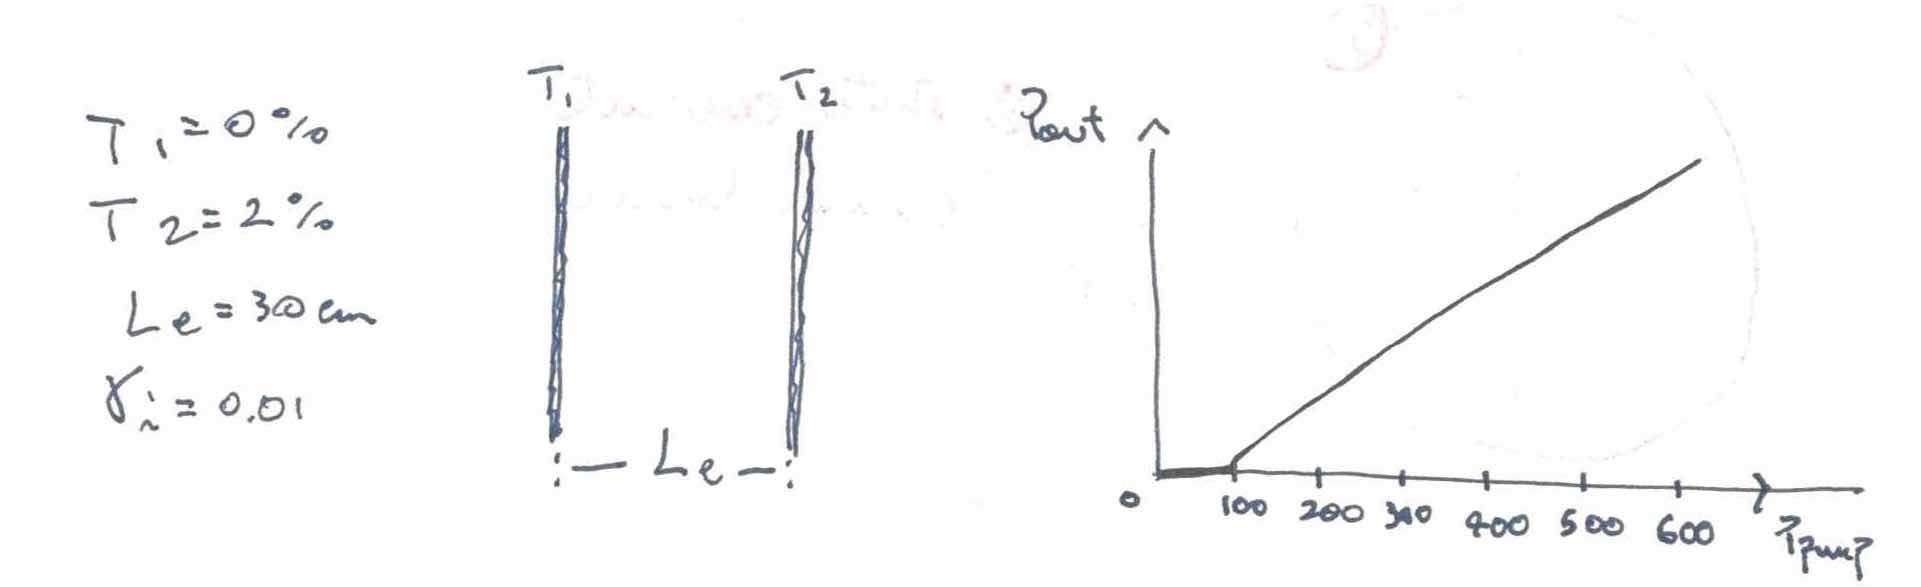 T1 = 0%
T2 = 2%
Le = 30 cm
γi = 0.01
T1
T2
Le
Pout
0
100
200
300
400
500
600
Ppump